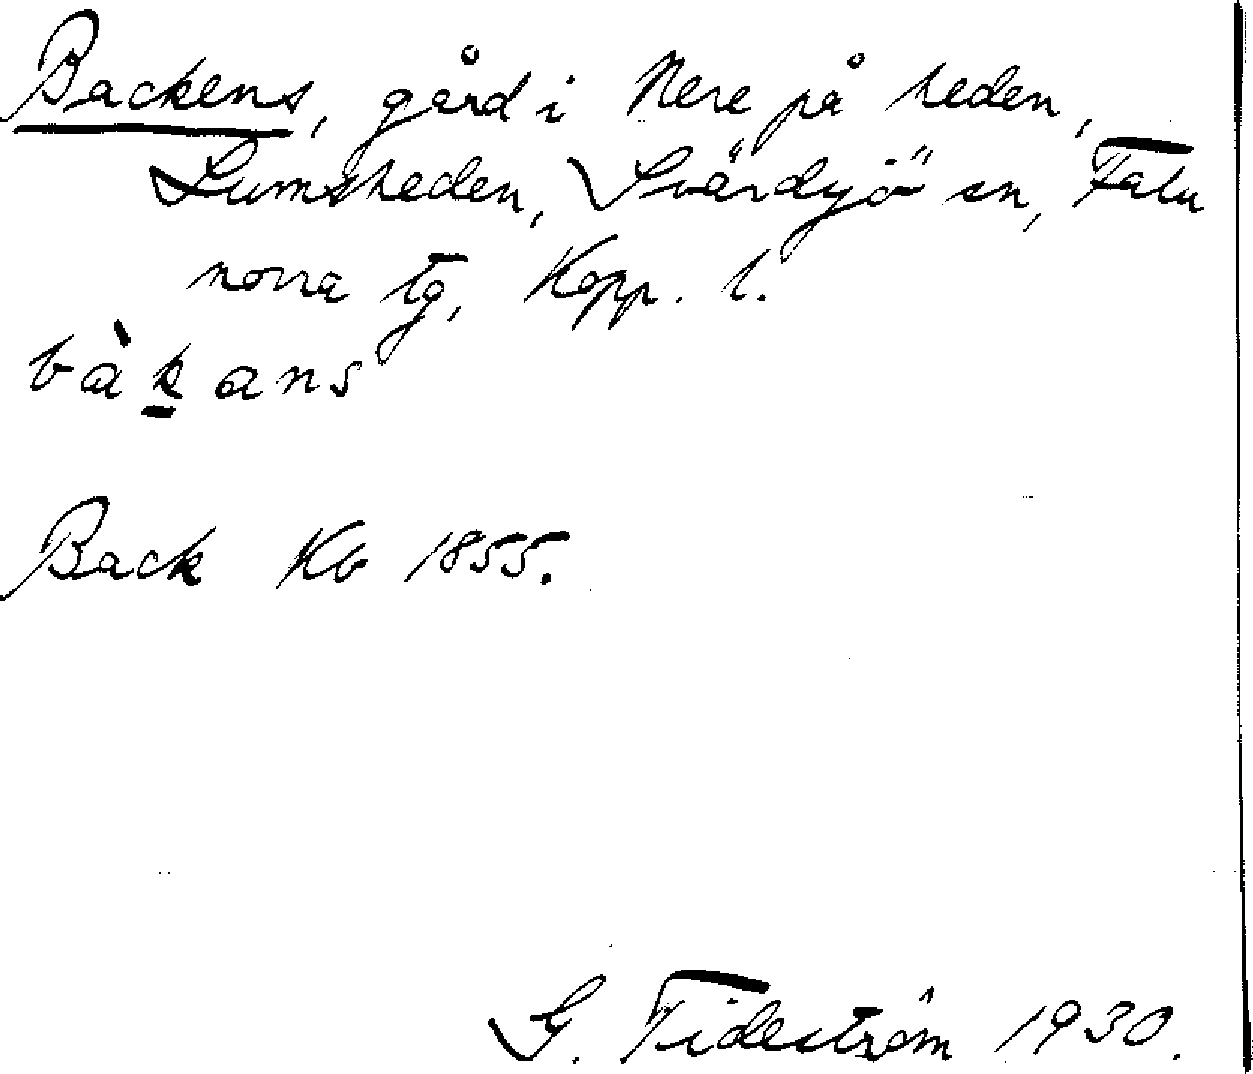 Backens, gård i Nere på heden,
Lumsheden, Svärdsjö sn, Falu
norra tg, Kopp. l.
bàkans
Back Kb 1855.
G. Tideström 1930.